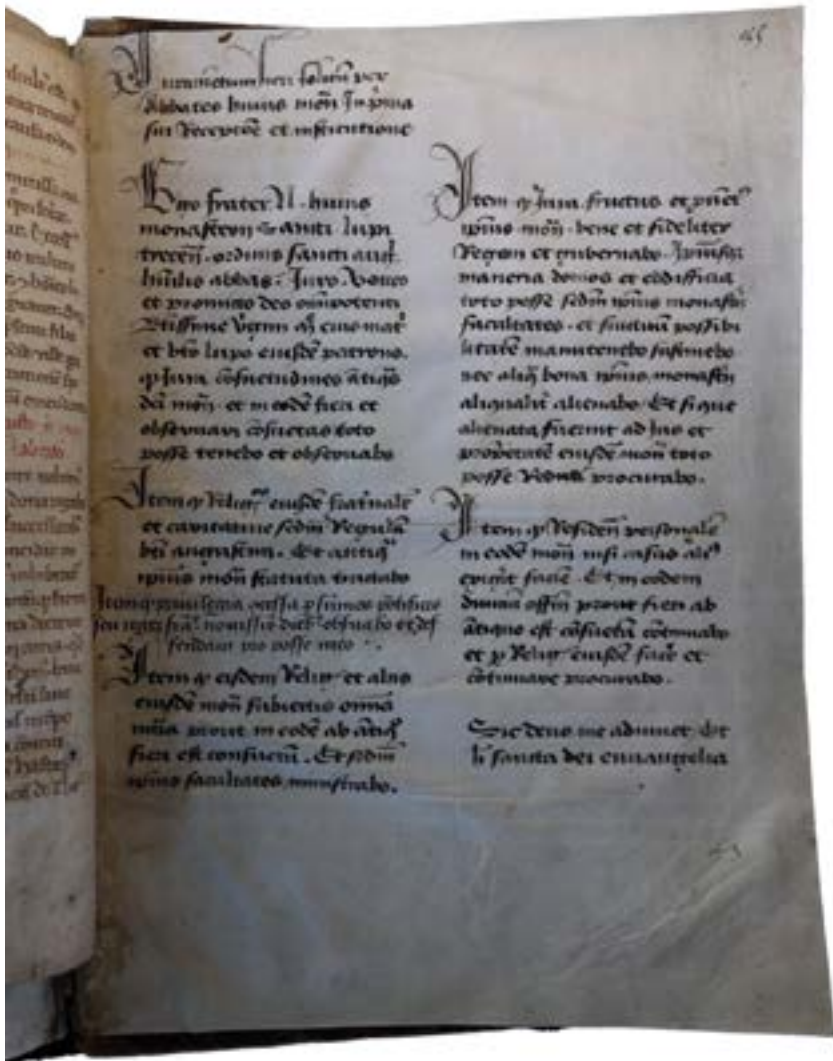 Juramentum fieri solitũ per
Abbates huius moñ In prima
sui Receptiõe et institutione
Ego frater N. huius
monasterii Sancti lupi
treceñ. ordinis sancti aug.
humilis abbas. Juro. Voveo
et promitto deo omnipotenti
Btissime virgini eius matř
et bto lupo eiusdẽ patrono.
q Jura cõsuetudines ãtiq̃s
dc̃i moñ. et in eodẽ fieri et
observari cõsuetas toto
posse tenebo et observabo
Item q Religˢ eiusdẽ fratnalr̃
et caritative scdm̃ Regulã
bti augustini. Et antiq̃
ipius moñ statuta tractabo
Item q privilegia cõcessa p sum̃os põtifices
seu reges observabo et def
fendam pro posse meo.
Item q eisdem Religˢ et aliis
eiusdẽ moñ subiectis om̃ia
nc̃ria prout in eodẽ ab ãtiq̃
fieri est consuetũ. Et scdm̃
ipius facultates ministrabo.
Item q Jura. fructus et pṽet̃
ipius moñ. bene et fideliter
Regam et gubernabo. Ipsiusq
maneria domos et edifficia
toto posse scdm̃ ipius monastˢ
facultates. et suam possibi
litatẽ manutenebo sustinebo
nec aliq̃ bona ipius monastˢ
aliqualr̃ alienabo. Et si que
alienata fuerint ad Jus et
propietatẽ eiusdẽ moñ toto
posse procurabo.
Item q Residenˢ personalẽ
in eodẽ moñ nisi casus aliˢ
exigat faciã. Et in eodem
divinũ offm̃ prout fieri ab
ãtiquo est cõsuetũ cõtinuabo
et p Religˢ eiusdẽ fieri et
cõtinuare procurabo.
Sic deus me adiuvet. Et
h̃ sancta dei euuangelia